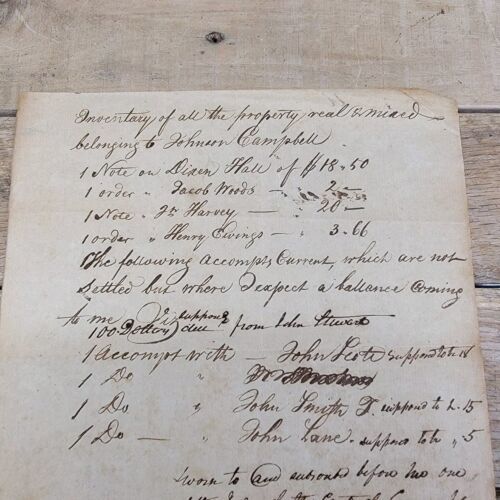 Inventory of all the property, real & mixed
belonging to Johnson Campbell
1 Note on Dixen Hall of $18.50
1 order " Jacob Woods — " 2 —
1 Note " Harvey — " 20 —
1 order " Henry Ewings — " 3.66
The following Accompts Current, which are not
Settled but where I expect a ballance Coming
to me suppond
100 Dollers due from John Stewart
1 Accompt with — John suppond to be
1 Do "
1 Do " John Smith T. suppond to be 15
1 Do — " John Lane. suppond to be " 5
Sworn to and before me one